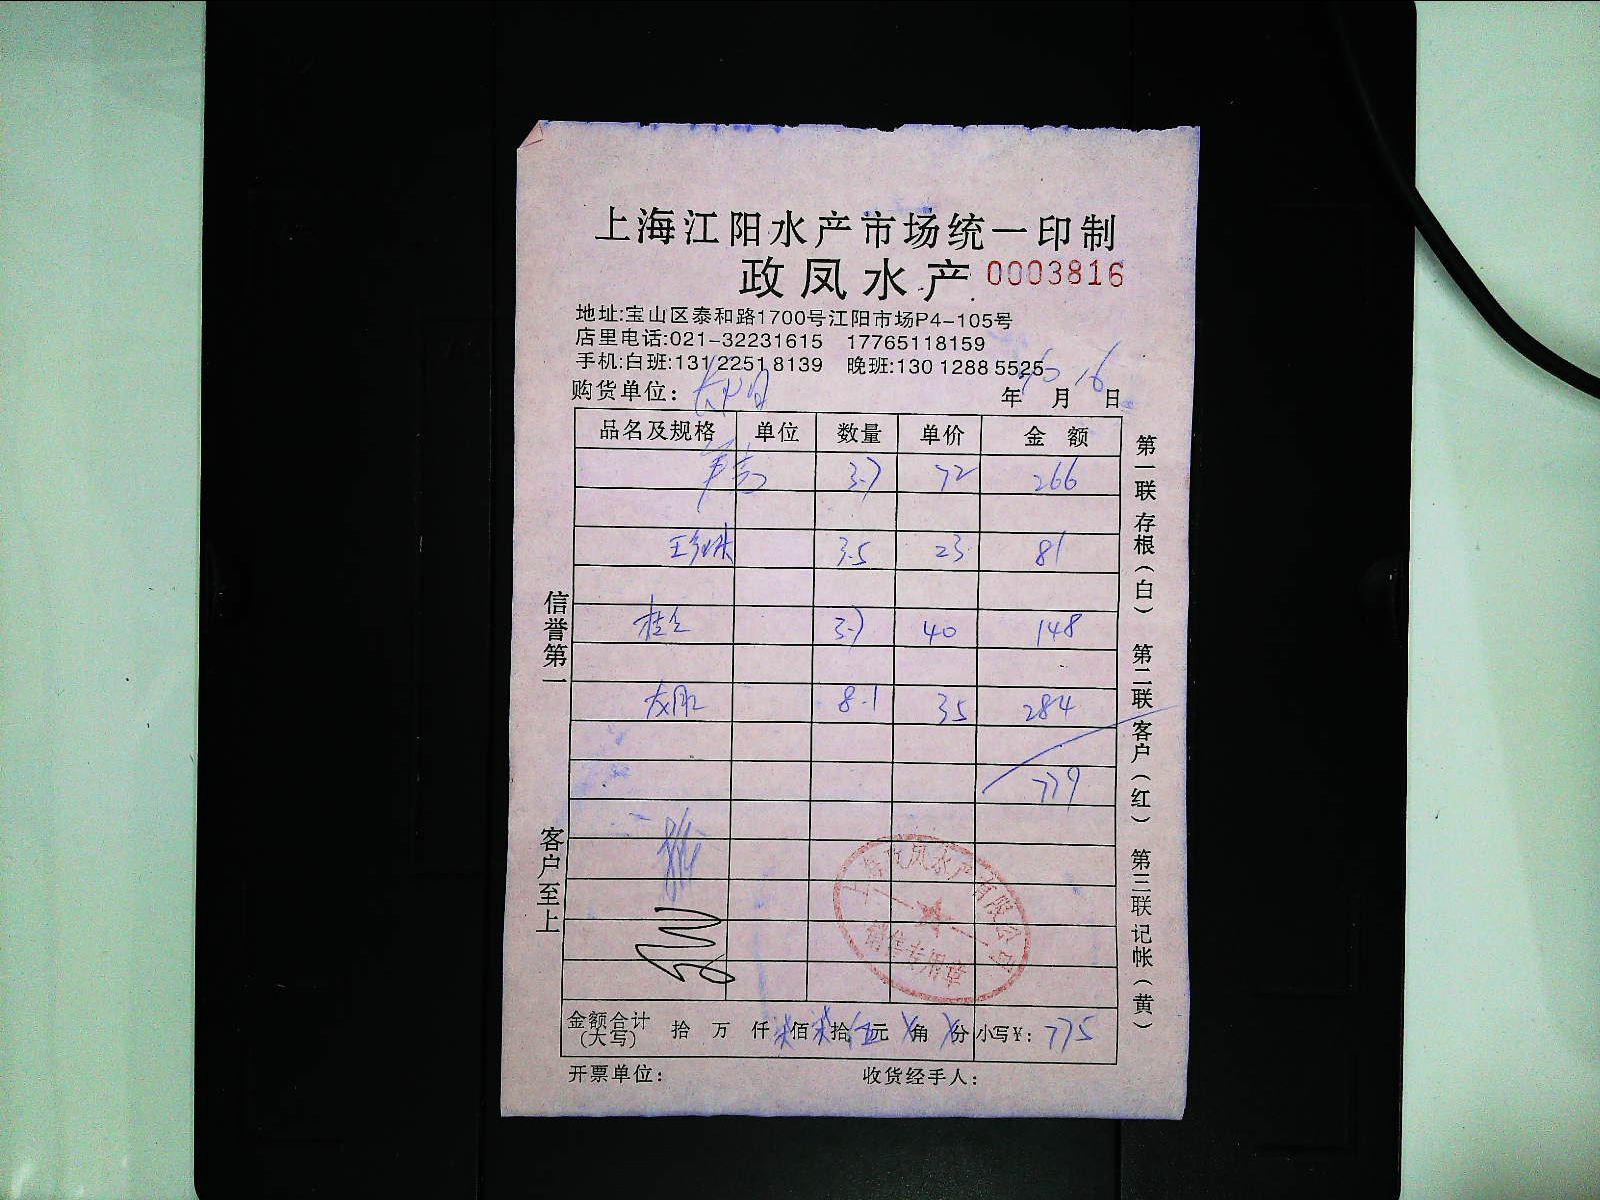 上海江阳水产市场统一印制
政凤水产 0003816
地址:宝山区泰和路1700号江阳市场P4-105号
店里电话:021-32231615 17765118159
手机:白班:131 2251 8139 晚班:130 1288 5525
购货单位: 年 月 16 日
品名及规格 单位 数量 单价 金额
3.7 72 266
3.5 23 81
3.7 40 148
8.1 35 284
779
金额合计(大写) 拾 万 仟 柒佰柒拾伍元 角 分 小写¥: 775
开票单位: 收货经手人:
信誉第一
客户至上
第一联存根(白) 第二联客户(红) 第三联记帐(黄)
上海政凤水产有限公司
销售专用章